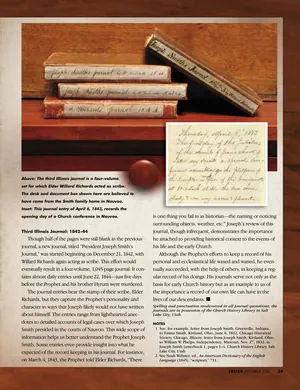 Above: The third Illinois journal is a four-volume
set for which Elder Willard Richards acted as scribe.
The desk and document box shown here are believed to
have come from the Smith family home in Nauvoo.
Inset: This journal entry of April 6, 1843, records the
opening day of a Church conference in Nauvoo.
Third Illinois Journal: 1842–44
Though half of the pages were still blank in the previous
journal, a new journal, titled “President Joseph Smith’s
Journal,” was started beginning on December 21, 1842, with
Willard Richards again acting as scribe. This effort would
eventually result in a four-volume, 1,045-page journal. It con-
tains almost daily entries until June 22, 1844—just five days
before the Prophet and his brother Hyrum were murdered.
The journal entries bear the stamp of their scribe, Elder
Richards, but they capture the Prophet’s personality and
character in ways that Joseph likely would not have written
about himself. The entries range from lighthearted anec-
dotes to detailed accounts of legal cases over which Joseph
Smith presided in the courts of Nauvoo. This wide scope of
information helps us better understand the Prophet Joseph
Smith. Some entries even provide insight into what he
expected of the record keeping in his journal. For instance,
on March 4, 1843, the Prophet told Elder Richards, “There
is one thing you fail in as historian—the naming or noticing
surrounding objects, weather, etc.” Joseph’s review of this
journal, though infrequent, demonstrates the importance
he attached to providing historical context to the events of
his life and the early Church.
Although the Prophet’s efforts to keep a record of his
personal and ecclesiastical life waxed and waned, he even-
tually succeeded, with the help of others, in keeping a reg-
ular record of his doings. His journals serve not only as the
basis for early Church history but as an example to us of
the importance a record of our own life can have in the
lives of our descendants. ■
Spelling and punctuation modernized in all journal quotations; the
journals are in possession of the Church History Library in Salt
Lake City, Utah.
NOTES
1. See, for example, letter from Joseph Smith, Greenville, Indiana,
to Emma Smith, Kirtland, Ohio, June 6, 1832, Chicago Historical
Society, Chicago, Illinois; letter from Joseph Smith, Kirtland, Ohio,
to William W. Phelps, Independence, Missouri, Nov. 27, 1832, in
Joseph Smith Letterbook 1, pages 1–4, Church History Library, Salt
Lake City, Utah.
2. See Noah Webster, ed., An American Dictionary of the English
Language
39